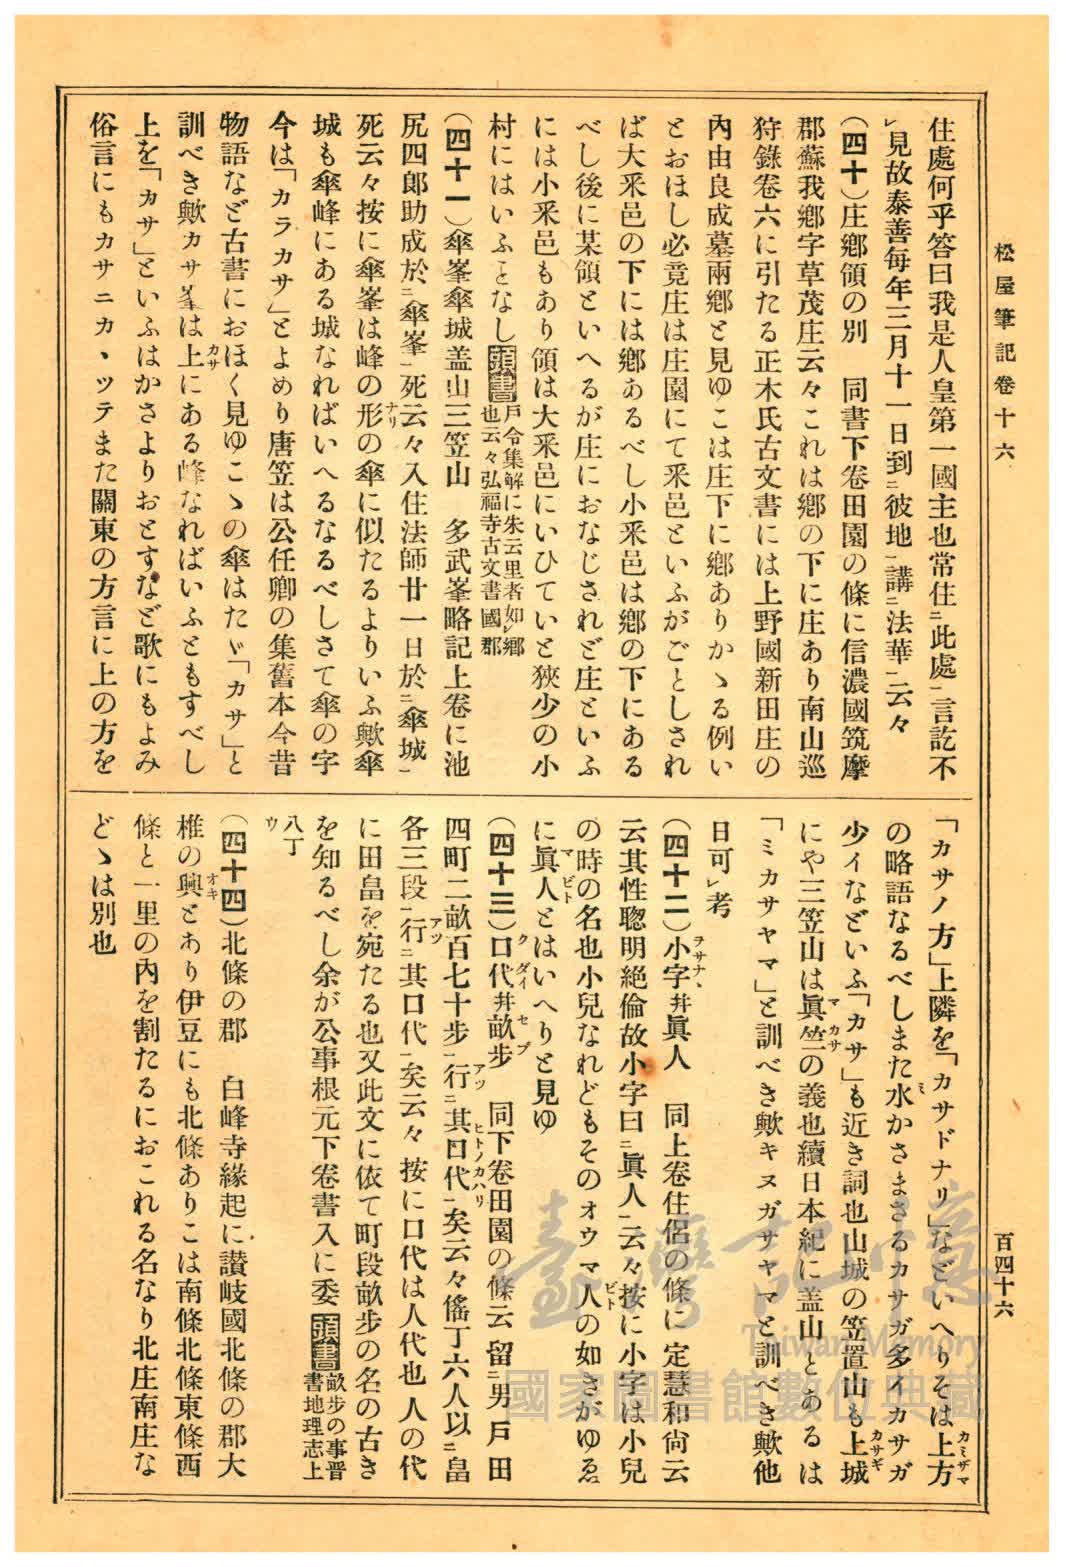 松屋筆記卷十六
住處何乎答曰我是人皇第一國主也常住ニ此處ニ言訖不
レ見故泰善每年三月十一日到ニ彼地ニ講ニ法華ニ云々
(四十)庄鄕領の別　同書下卷田園の條に信濃國筑摩
郡蘇我鄕字草茂庄云々これは鄕の下に庄あり南山巡
狩錄卷六に引たる正木氏古文書には上野國新田庄の
內由良成墓兩鄕と見ゆこは庄下に鄕ありかゝる例い
とおほし必竟庄は庄園にて釆邑といふがごとしされ
ば大釆邑の下には鄕あるべし小釆邑は鄕の下にある
べし後に某領といへるが庄におなじされど庄といふ
には小釆邑もあり領は大釆邑にいひていと狹少の小
村にはいふとなし頭書戶令集解に朱云里者如レ鄕也云々弘福寺古文書國郡
(四十一)傘峯傘城盖山三笠山　多武峯略記上卷に池
尻四郎助成於ニ傘峯ニ死云々入住法師廿一日於ニ傘城ニ
死云々按に傘峯は峰の形ナリの傘に似たるよりいふ歟傘
城も傘峰にある城なればいへるなるべしさて傘の字
今は「カラカサ」とよめり唐笠は公任卿の集舊本今昔
物語など古書におほく見ゆこゝの傘はたゞ「カサ」と
訓べき歟カサ峯は上カサにある峰なればいふともすべし
上を「カサ」といふはかさよりおとすなど歌にもよみ
俗言にもカサニカヽツテまた關東の方言に上の方を
「カサノ方」上隣を「カサドナリ」などいへりそは上方カミザマ
の略語なるべしまた水ミかさまさるカサガ多イカサガ
少イなどいふ「カサ」も近き詞也山城の笠置山も上城カサギ
にや三笠山は眞竺マカサの義也續日本紀に盖山とあるは
「ミカサヤマ」と訓べき歟キヌガサヤマと訓べき歟他
日可レ考
(四十二)小字ヲサナヽ幷眞人　同上卷住侶の條に定慧和尙云
云其性聰明絕倫故小字曰ニ眞人ニ云々按に小字は小兒
の時の名也小兒なれどもそのオウマ人ビトの如きがゆゑ
に眞人マビトとはいへりと見ゆ
(四十三)口代クダイ幷畝步セブ　同下卷田園の條云留ニ男戶田
四町二畝百七十步ニ行アツニ其口代ヒトノカハリニ矣云々傜丁六人以ニ畠
各三段ニ行アツニ其口代ニ矣云々按に口代は人代也人の代
に田畠を宛たる也又此文に依て町段畝步の名の古き
を知るべし余が公事根元下卷書入に委頭書畝步の事晋書地理志上
八丁ウ
(四十四)北條の郡　白峰寺緣起に讃岐國北條の郡大
椎の興オキとあり伊豆にも北條ありこは南條北條東條西
條と一里の內を割たるにおこれる名なり北庄南庄な
どゝは別也
百四十六
臺灣記憶
Taiwan Memory
國家圖書館數位典藏